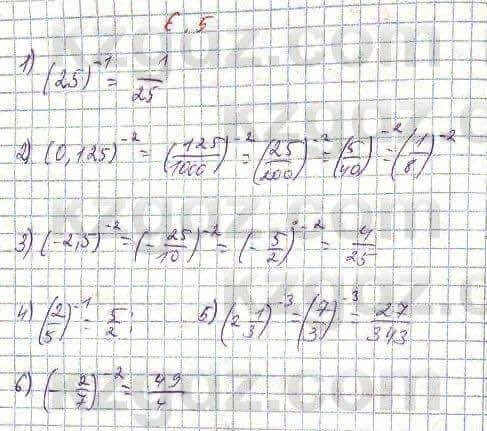 6.5
1) (25)^-1 = 1/25
2) (0,125)^-2 = (125/1000)^-2 = (25/200)^-2 = (5/40)^-2 = (1/8)^-2
3) (-2,5)^-2 = (-25/10)^-2 = (-5/2)^-2 = 4/25
4) (2/5)^-1 = 5/2 5) (2 1/3)^-3 = (7/3)^-3 = 27/343
6) (-2/7)^-2 = 49/4